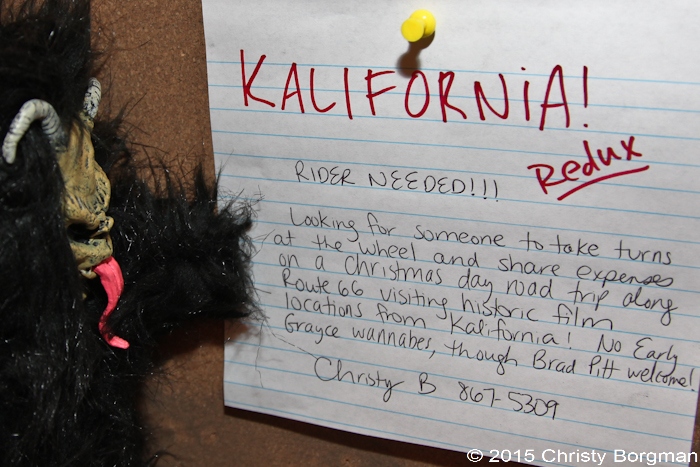 KALIFORNiA!
Redux
RIDER NEEDED!!!
Looking for someone to take turns
at the wheel and share expenses
on a Christmas day road trip along
Route 66 visiting historic film
locations from Kalifornia! No Early
Grayce wannabes, though Brad Pitt welcome!
Christy B 867-5309
© 2015 Christy Borgman